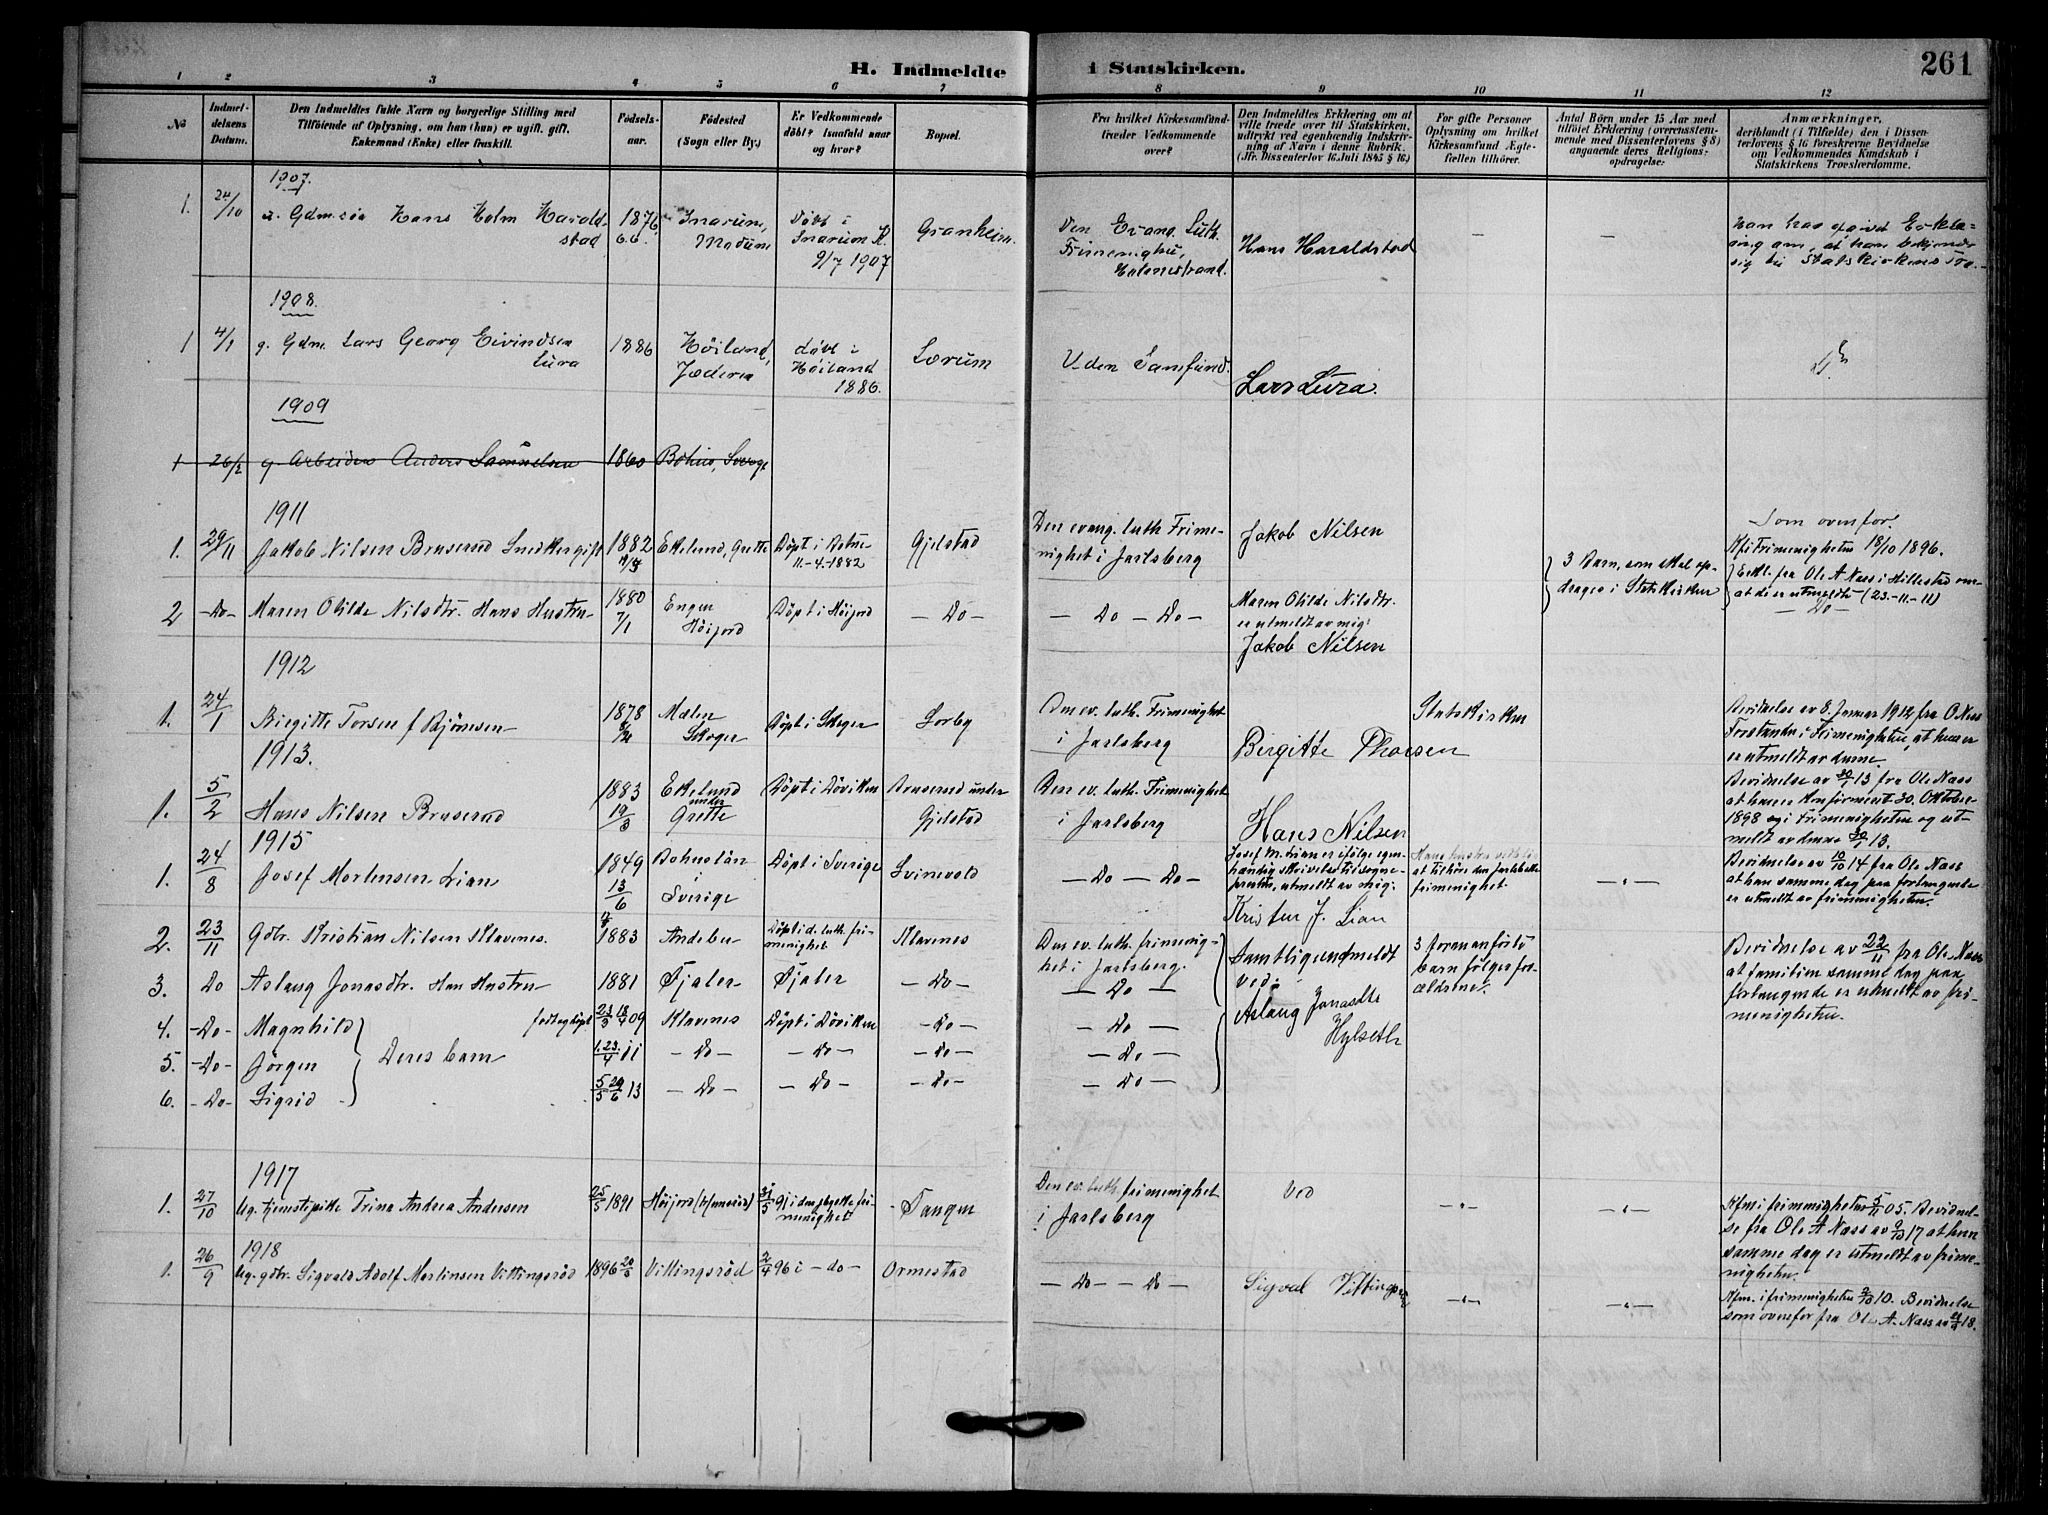 H. Indmeldte i Statskirken. 261
1 2 3 4 5 6 7 8 9 10 11 12
No
Indmeldelsens Datum.
Den Indmeldtes fulde Navn og borgerlige Stilling med
Tilföiende af Oplysning, om han (hun) er ugift, gift,
Enkemand (Enke) eller fraskilt.
Födselsaar.
Födested
(Sogn eller By.)
Er Vedkommende
döbt? Isaafald naar
og hvor?
Bopæl.
Fra hvilket Kirkesamfund
træder Vedkommende
over?
Den Indmeldtes Erklæring om at
ville træde over til Statskirken,
udtrykt ved egenhændig Indskrivning
af Navn i denne Rubrik.
(Jfr. Dissenterlov 16 Juli 1845 § 16.)
For gifte Personer
Oplysning om hvilket
Kirkesamfund Ægtefællen
tilhörer.
Antal Börn under 15 Aar med
tilföiet Erklæring (overensstemmende
med Dissenterlovens § 8)
angaaende deres Religionsopdragelse:
Anmærkninger,
deriblandt (i Tilfælde) den i Dissenterlovens
§ 16 foreskrevne Bevidnelse
om Vedkommendes Kundskab i
Statskirkens Troeslærdomme.
1907.
1. 24/10 Hans Holm Haraldstad 1876 6.6. Snarum, Modum Döbt i Snarum K. 9/7 1907 Granheim. Den Evang. Luth. Frimenighed, Holmestrand. Hans Haraldstad — — han har afgivet Erklæring om, at han bekjender sig til Statskirkens Tro.
1908.
1 4/1 g. Gdm. Lars Georg Eivindsen Lura 1886 Höiland, Jæderen döbt i Höiland 1886. Sørum Uden Samfund. Lars Lura.
1909
1 26/2 g. Arbeider Anders Samuelsen 1860 Bohus, Sverge
1911
1. 29/11 Jakob Nilsen Bruserud Snedker gift 1882 Ekelund, Grette Döpt i Botne 11.-4.-1882 Gjelstad Den evang. luth Frimenighet i Jarlsberg Jakob Nilsen 3 Barn, som skal opdrages i Statskirken Som ovenfor. Kfi Frimenigheten 18/10 1896. Erkl. fra Ole A Nass i Hillestad om at de er utmeldte (23.-11.-11)
2 -Do- Maren Otilde Nilsdtr. Hans Hustru 1880 7/1 Engen Höijord Döpt i Höijord - Do - - Do - Do - Maren Otilde Nilsdtr. er utmeldt av mig: Jakob Nilsen - Do -
1912
1. 24/1 Birgitte Torsen f Bjørnsen 1878 Mælen Skoger döpt i Skoger Sorby Den ev. luth. Frimenighet i Jarlsberg Birgitte Thorsen Statskirken Bevidnelse av 8. Januar 1912 fra O Nass Forstander i Frimenigheten, at hun er utmeldt av denne.
1913.
1. 5/2 Hans Nilsen Bruserud 1883 19/3 Ekelund under Grette Döpt i Döviken Bruserud under Gjelstad Den ev. luth. Frimenighet i Jarlsberg Hans Nilsen Bevidnelse av 30/1 13 fra Ole Nass at han er konfirmeret 30. Oktober 1898 i Frimenigheten og utmeldt av denne 30/1 13.
1915
1. 24/8 Josef Mortensen Lian 1849 13/6 Bohuslän Sverige Döpt i Sverige Svinevold - Do - Do - Josef M. Lian er ifølge egenhændig skrivelse til sogneprestn, utmeldt av mig: Kristen J. Lian Hans hustru at tilhöre den Jarlsbergske frimenighet. - " - Bevidnelse av 10/10 14 fra Ole Nass at han samme dag paa forlangende er utmeldt av frimenigheten.
2. 23/11 Gbr. Kristian Nilsen Klavenes. 1883 Andebu Döpt i d. luth. frimenighet Klavenes Den ev. luth. frimenighet i Jarlsberg. Samtlige indmeldt ved: 3 foranførte barn følger forældrene. Bevidnelse av 22/11 fra Ole Nass at familien samme dag paa forlangende er utmeldt av frimenigheten.
3. Do Aslaug Jonasdtr. Hans Hustru 1881 Fjaler Fjaler - Do - - Do - Aslaug Jonasdtr Hylseth
4. -Do- Magnhild född og döpt 23/3 18/4 09 Klavenes Döpt i Döviken - Do - - Do -
5. -Do- Jørgen Deres barn 1. 23./4 11 - Do - - Do - - Do - - Do -
6. -Do- Sigrid 5/5 29/6 13 - Do - - Do - - Do - - Do -
1917
1. 27/10 Ug. tjenestepike Trina Andrea Andersen 25/5 1891 Höijord 31/5 91 i den frimenighet Tangen Den ev. luth. frimenighet i Jarlsberg Ved - " - - " - Kfm i frimenigheten 5/11 05. Bevidnelse fra Ole A Nass av 9/10 17 at hun samme dag er utmeldt av frimenigheten.
1918
1. 26/9 Ug. gbr. Sigvald Adolf Martinsen Vittingsröd 1896 Vittingsröd 2/4 96 i - do - Ormestad - Do - Do - Sigval Vittingsrød - " - - " - Kfm. i frimenigheten 2/10 10. Bevidnelse som ovenfor fra Ole A. Nass av 18.